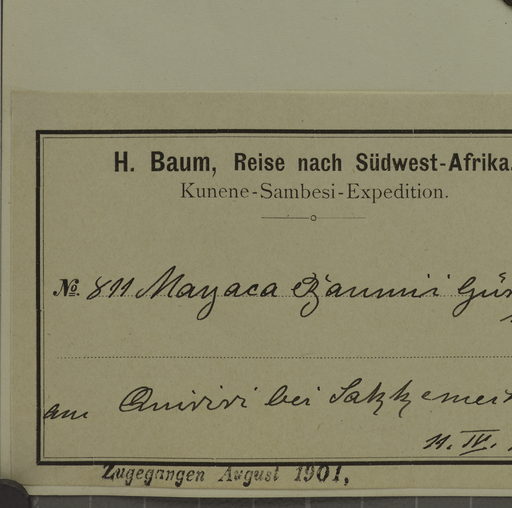 H. Baum, Reise nach Südwest-Afrika.
Kunene-Sambesi-Expedition.
No. 811 Mayaca Baumii Gür
am Quiriri bei
11. IV.
Zugegangen August 1901,